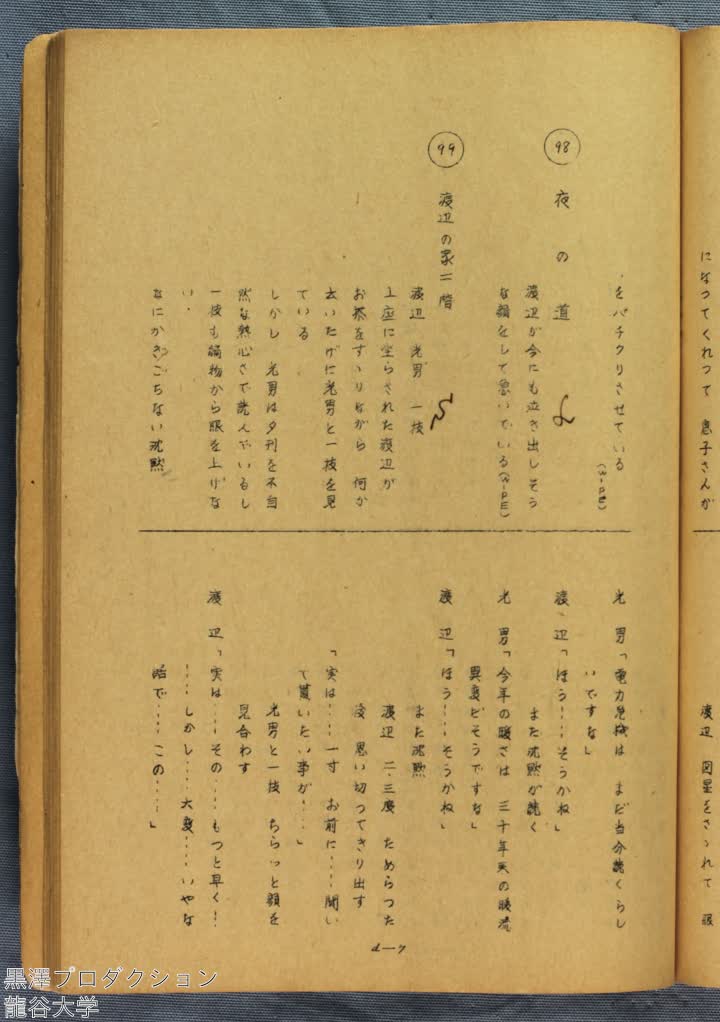 になつてくれつて 息子さんが
渡辺 図星をさゝれて 眼
をパチクリさせている
(WIPE)
98 夜の道
渡辺が今にも泣き出しそう
な顔をして急いでいる(WIPE)
99 渡辺の家二階
渡辺 光男 一枝
上座に坐らされた渡辺が
お茶をすゝりながら 何か
云いたげに光男と一枝を見
ている
しかし 光男は夕刊を不自
然な熱心さで読んでいるし
一枝も編物から眼を上げな
い.
なにかぎごちない沈黙
光 男「電力危機は まだ当分続くらし
いですな」
渡 辺「ほう……そうかね」
また沈黙が続く
光 男「今年の暖さは 三十年来の暖流
異変だそうですな」
渡 辺「ほう……そうかね」
また沈黙
渡辺 二.三度 ためらつた
後 思い切つてきり出す
「実は……一寸 お前に……聞い
て貰いたい事が……」
光男と一枝 ちらっと顔を
見合わす
渡 辺「実は……その……もつと早く……
……しかし……大変……いやな
話で……この……」
d—7
黒澤プロダクション
龍谷大学